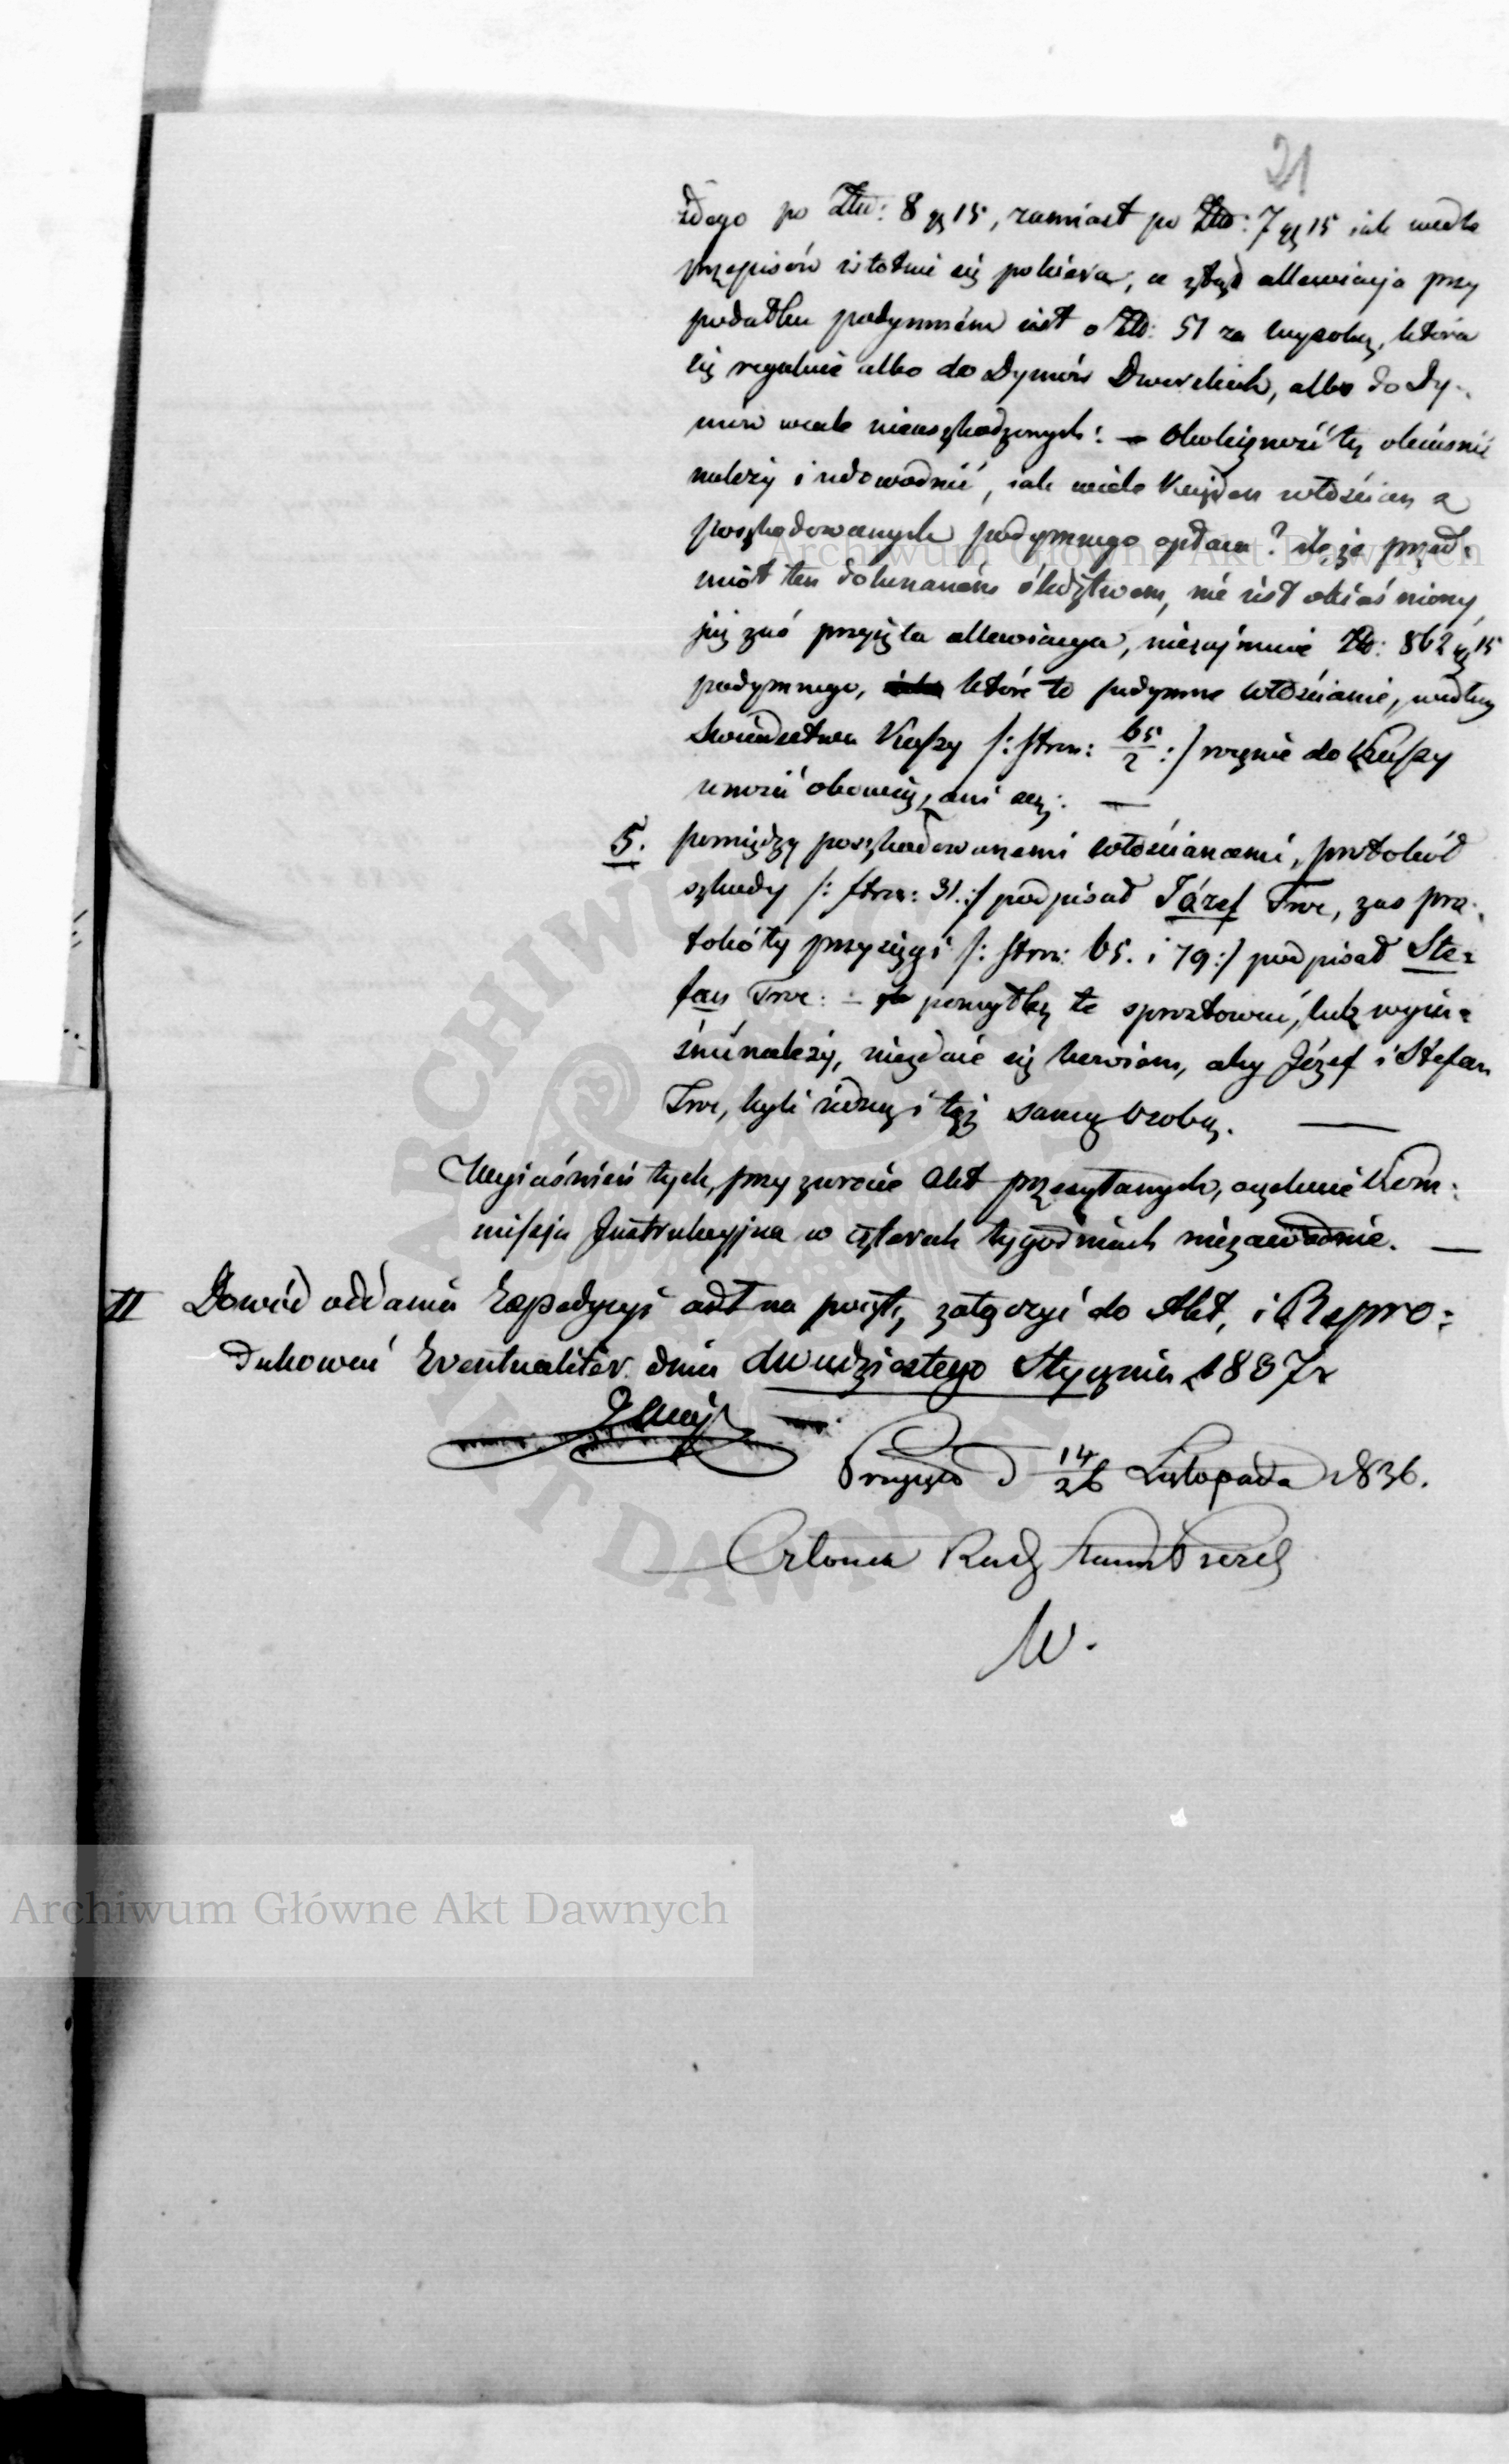 21
żdego po Złtt: 8 gr 15, zamiast po Złt: 7 gr 15 iak wedle
przepisów istotnie się pobiera, a ztąd allewiacja przy
podatku podymném iest o Złt: 51 za wysoką, która
się reguluie albo do Dymów Dworskich, albo do Dy-
mów wcale nieuszkodzonych: — Okoliczność tę obiaśnić
należy i udowodnić, iak wiele każden włościan z
poszkodowanych podymnego opłaca? ileże przed-
miot ten dokonaném śledztwem, nie iest obiaśniony
już zaś przyjęta allewiacya, niezajmuie Złt: 862 gr 15
podymnego, które to podymne włościanie, według
świadectwa Kassy /: stro: 65/2 :/ rocznie do Kassy
wnosić obowiązani są. —
5. pomiędzy poszkodowanemi włościanami, protokół
szkody /: stro: 31. :/ podpisał Józef Troc, zaś pro-
tokóły przysięgi /: stro: 65. i 79 :/ podpisał Ste-
fan Troc: — pomyłkę te sprostować, lub wyia-
śnić należy, niezdaie się bowiem, aby Józef i Stefan
Troc, byli iedną i tąż samą osobą. —
Wyiaśnień tych, przy zwrocie Akt przesyłanych, oczekuie Kom-
missja Instrukcyjna w czterech tygodniach niezawodnie. —
II Dowód oddania Expedycyi akt na pocztę, załączyć do Akt, i Repro-
dukować Eventualiter dnia dwudziestego Stycznia 1837 r
Przyjęto d 14/26 Listopada 1836.
Członek Rady
W.
Archiwum Główne Akt Dawnych
Archiwum Główne Akt Dawnych